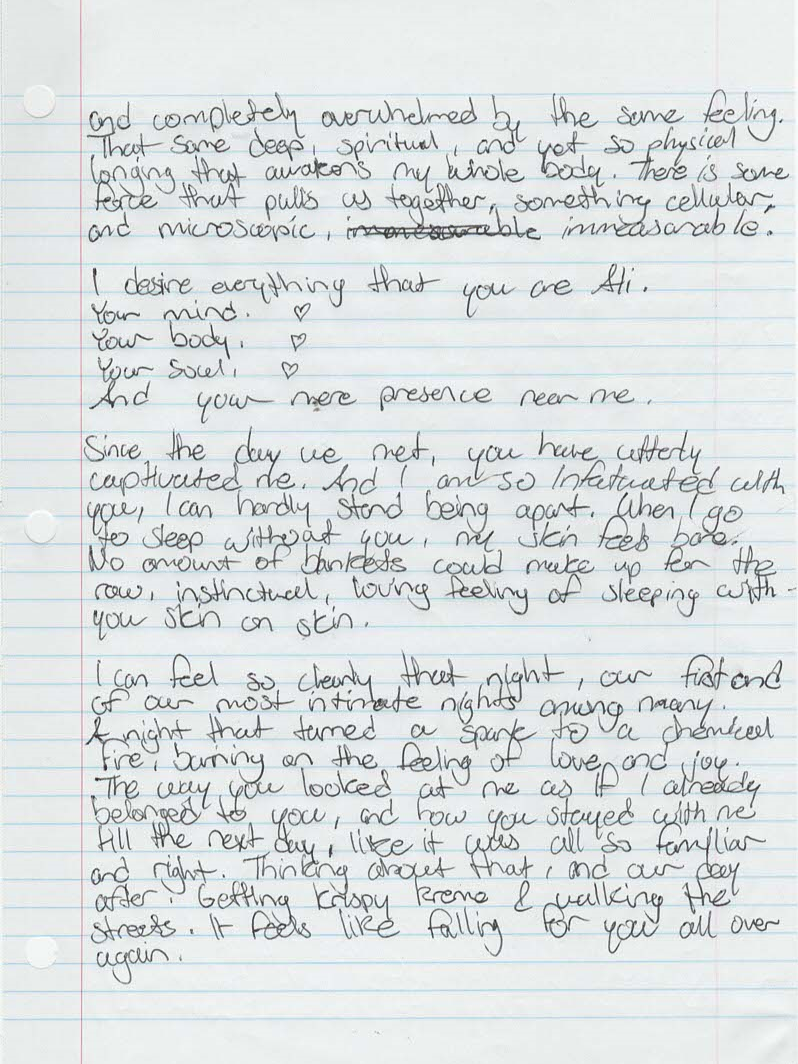 and completely overwhelmed by the same feeling.
That same deep, spiritual, and yet so physical
longing that awakens my whole body. There is some
force that pulls us together, something cellular,
and microscopic, immeasurable immeasarable.
I desire everything that you are Ali.
Your mind. ♡
Your body. ♡
Your soul. ♡
And your mere presence near me.
Since the day we met, you have utterly
captivated me. And I am so infatuated with
you, I can hardly stand being apart. When I go
to sleep without you, my skin feels bare.
No amount of blankets could make up for the
raw, instinctual, loving feeling of sleeping with
you skin on skin.
I can feel so clearly that night, our first and
of our most intimate nights among many.
A night that turned a spark to a chemical
fire, burning on the feeling of love and joy.
The way you looked at me as if I already
belonged to you, and how you stayed with me
till the next day, like it was all so familiar
and right. Thinking about that, and our day
after. Getting krispy kreme & walking the
streets. It feels like falling for you all over
again.